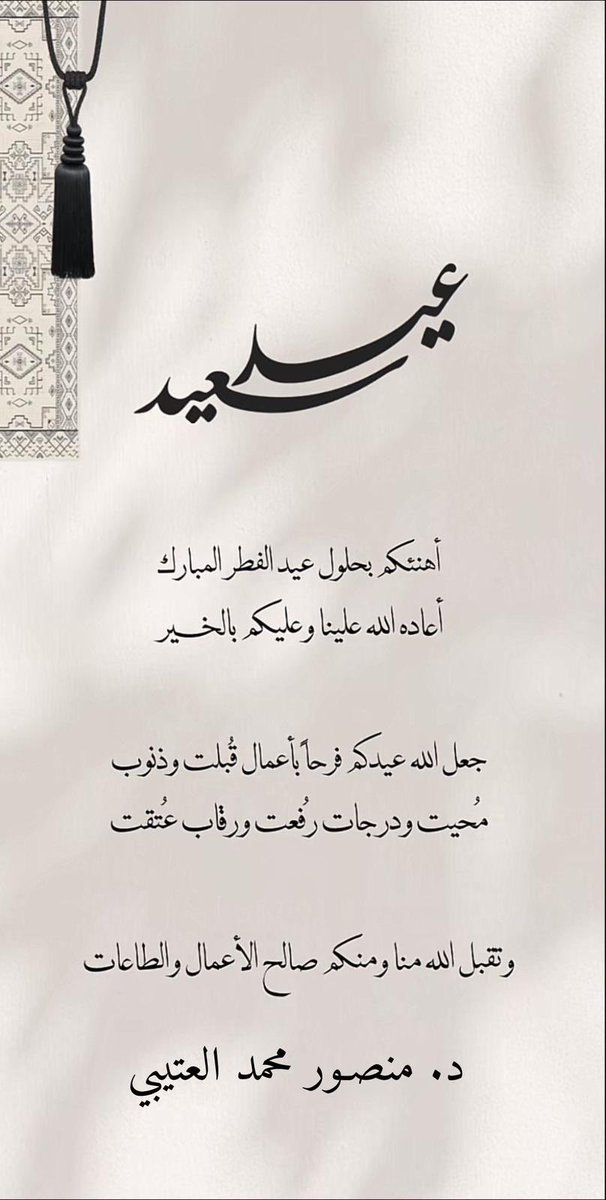 عيد
سعيد
أهنئكم بحلول عيد الفطر المبارك
أعاده الله علينا وعليكم بالخير
جعل الله عيدكم فرحاً بأعمال قُبلت وذنوب
مُحيت ودرجات رُفعت ورقاب عُتقت
وتقبل الله منا ومنكم صالح الأعمال والطاعات
د. منصور محمد العتيبي